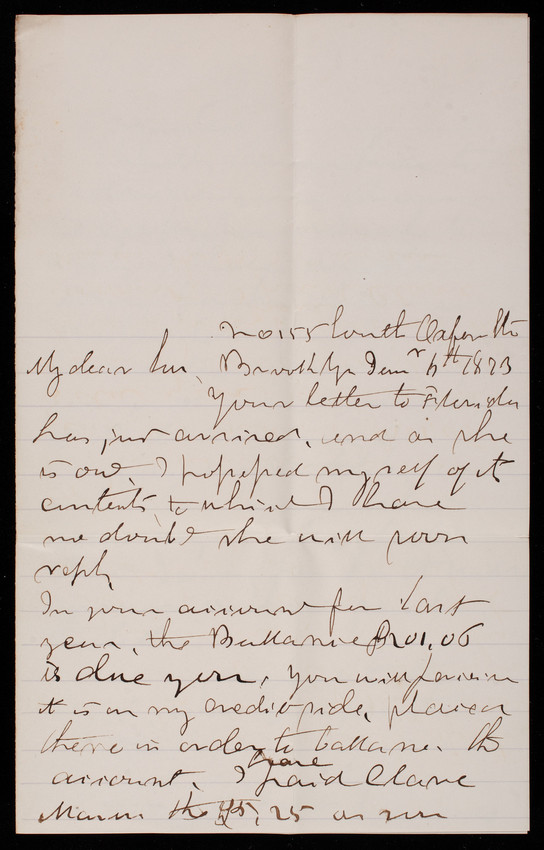 No 155 South Oxford St
My dear Sir, Brooklyn Jan^r 6th 1873
Your letter to Florida
has just arrived, and as she
is out, I possessed myself of its
contents, to which I have
no doubt she will soon
reply
In your account for last
year, the Ballance $201.06
is due you, you will perceive
it is on my credit side, placed
there in order to ballance the
account. I have paid Clare
the 25 as per